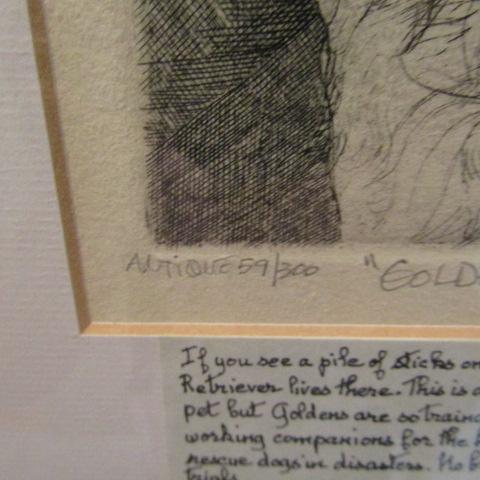 ANTIQUE 59/300 "GOLD
If you see a pile of sticks on
Retriever lives there. This is a
pet but Goldens are so train
working companions for the
rescue dogs in disasters. No
trials